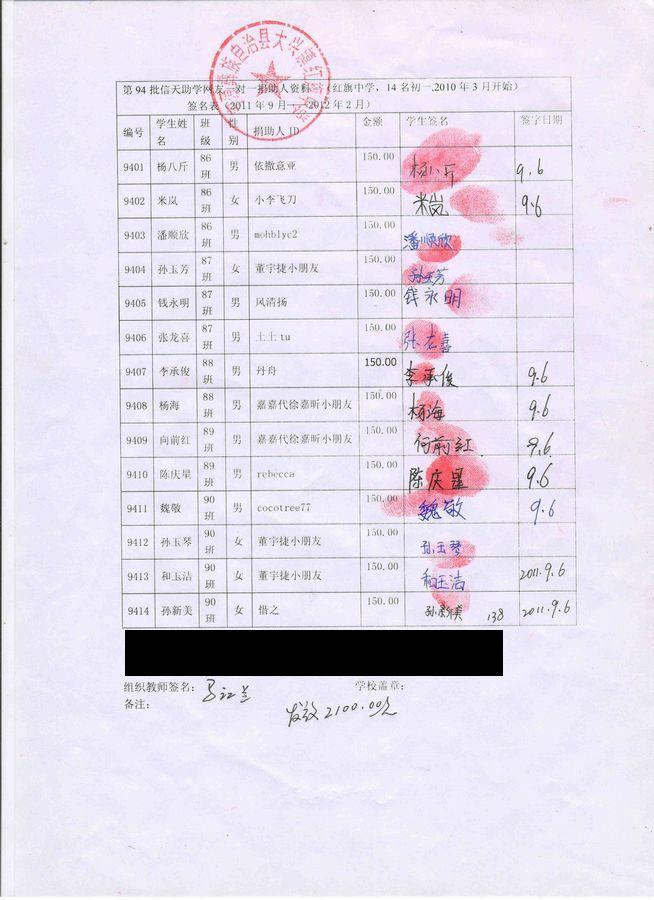 彝族自治县大兴镇红旗中学
第 94 批信天助学网友一对一捐助人资料 (红旗中学，14 名初一,2010 年 3 月开始)
签名表（2011 年 9 月——2012 年 2 月）
编号 学生姓名 班级 性别 捐助人 ID 金额 学生签名 签字日期
9401 杨八斤 86班 男 依撒意亚 150.00 杨八斤 9.6
9402 米岚 86班 女 小李飞刀 150.00 米岚 9.6
9403 潘顺欣 86班 男 mohblyc2 150.00 潘顺欣
9404 孙玉芳 87班 女 董宇捷小朋友 150.00 孙玉芳
9405 钱永明 87班 男 风清扬 150.00 钱永明
9406 张龙喜 87班 男 土土 tu 150.00 张龙喜
9407 李承俊 88班 男 丹舟 150.00 李承俊 9.6
9408 杨海 88班 男 嘉嘉代徐嘉昕小朋友 150.00 杨海 9.6
9409 向前红 89班 男 嘉嘉代徐嘉昕小朋友 150.00 向前红. 9.6
9410 陈庆星 89班 男 rebecca 150.00 陈庆星 9.6
9411 魏敬 90班 男 cocotree77 150.00 魏敬 9.6
9412 孙玉琴 90班 女 董宇捷小朋友 150.00 孙玉琴
9413 和玉洁 90班 女 董宇捷小朋友 150.00 和玉洁 2011.9.6
9414 孙新美 90班 女 惜之 150.00 孙新美 138 2011.9.6
组织教师签名： 学校盖章：
备注： 发放2100.00元